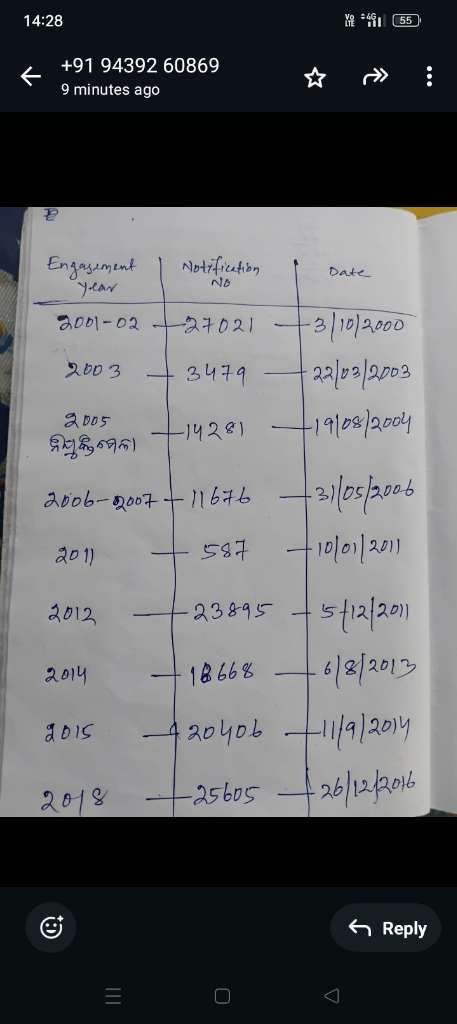 14:28
Vo LTE 4G 55
+91 94392 60869
9 minutes ago
Engagement Year Notification No Date
2001-02 27021 3/10/2000
2003 3479 22/03/2003
2005 14281 19/08/2004
2006-2007 11676 31/05/2006
2011 587 10/01/2011
2012 23895 5/12/2011
2014 18668 6/8/2013
2015 20406 11/9/2014
2018 25605 26/12/2016
Reply